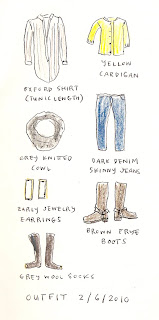 OXFORD SHIRT
(TUNIC LENGTH)
YELLOW
CARDIGAN
GREY KNITTED
COWL
DARK DENIM
SKINNY JEANS
EARLY JEWELRY
EARRINGS
BROWN FRYE
BOOTS
GREY WOOL SOCKS
OUTFIT 2/6/2010